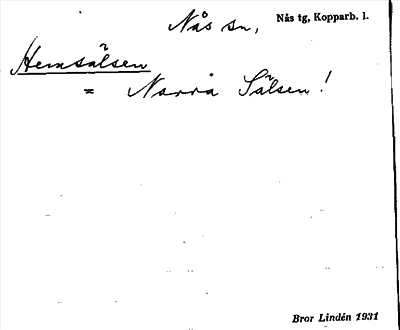 Nås sn, Nås tg, Kopparb. l.
Hemsålsen
= Norra Sålsen!
Bror Lindén 1931